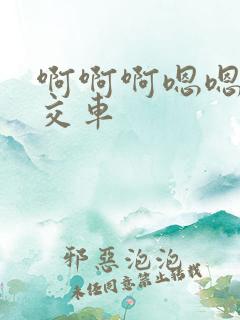 啊啊啊嗯嗯
交车
邪恶泡泡
未经同意禁止转载